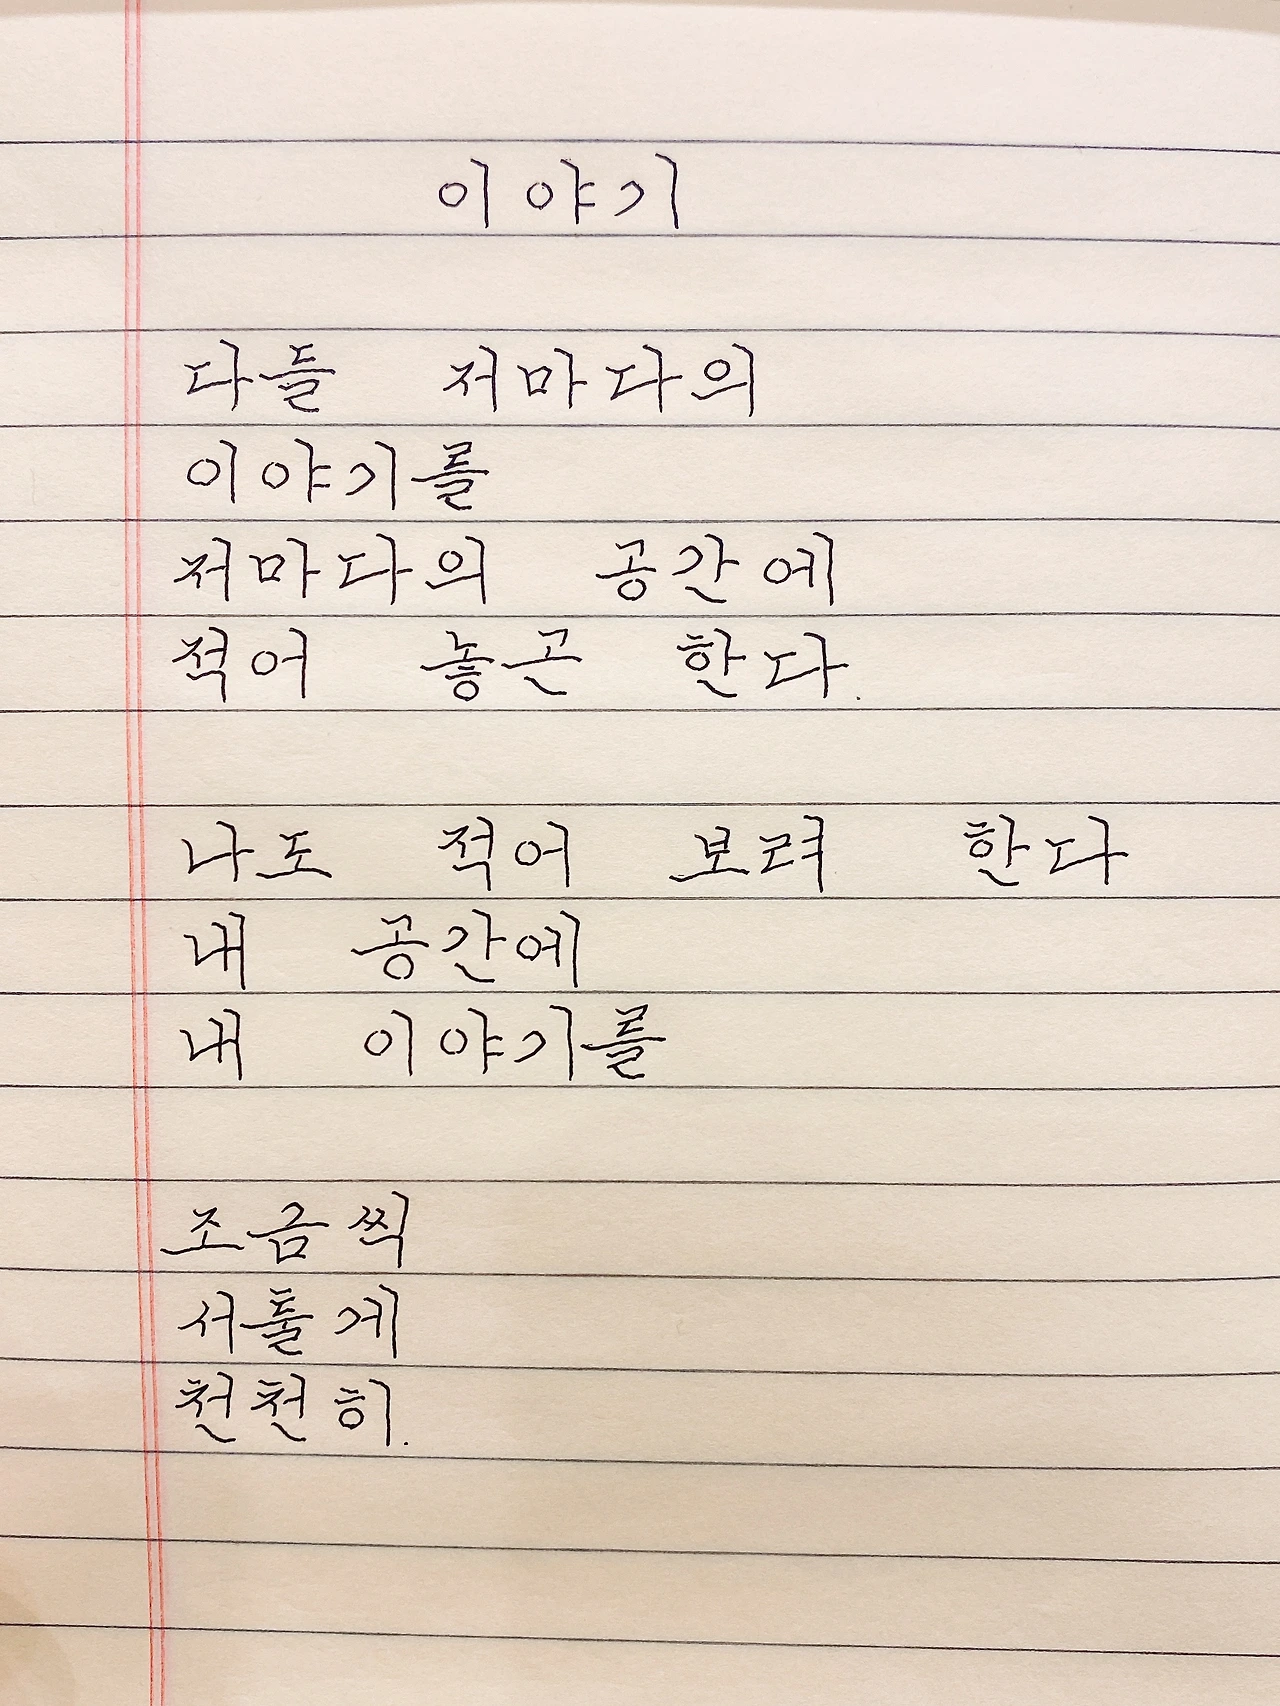 이야기
다들 저마다의
이야기를
저마다의 공간에
적어 놓곤 한다.
나도 적어 보려 한다
내 공간에
내 이야기를
조금씩
서툴게
천천히.